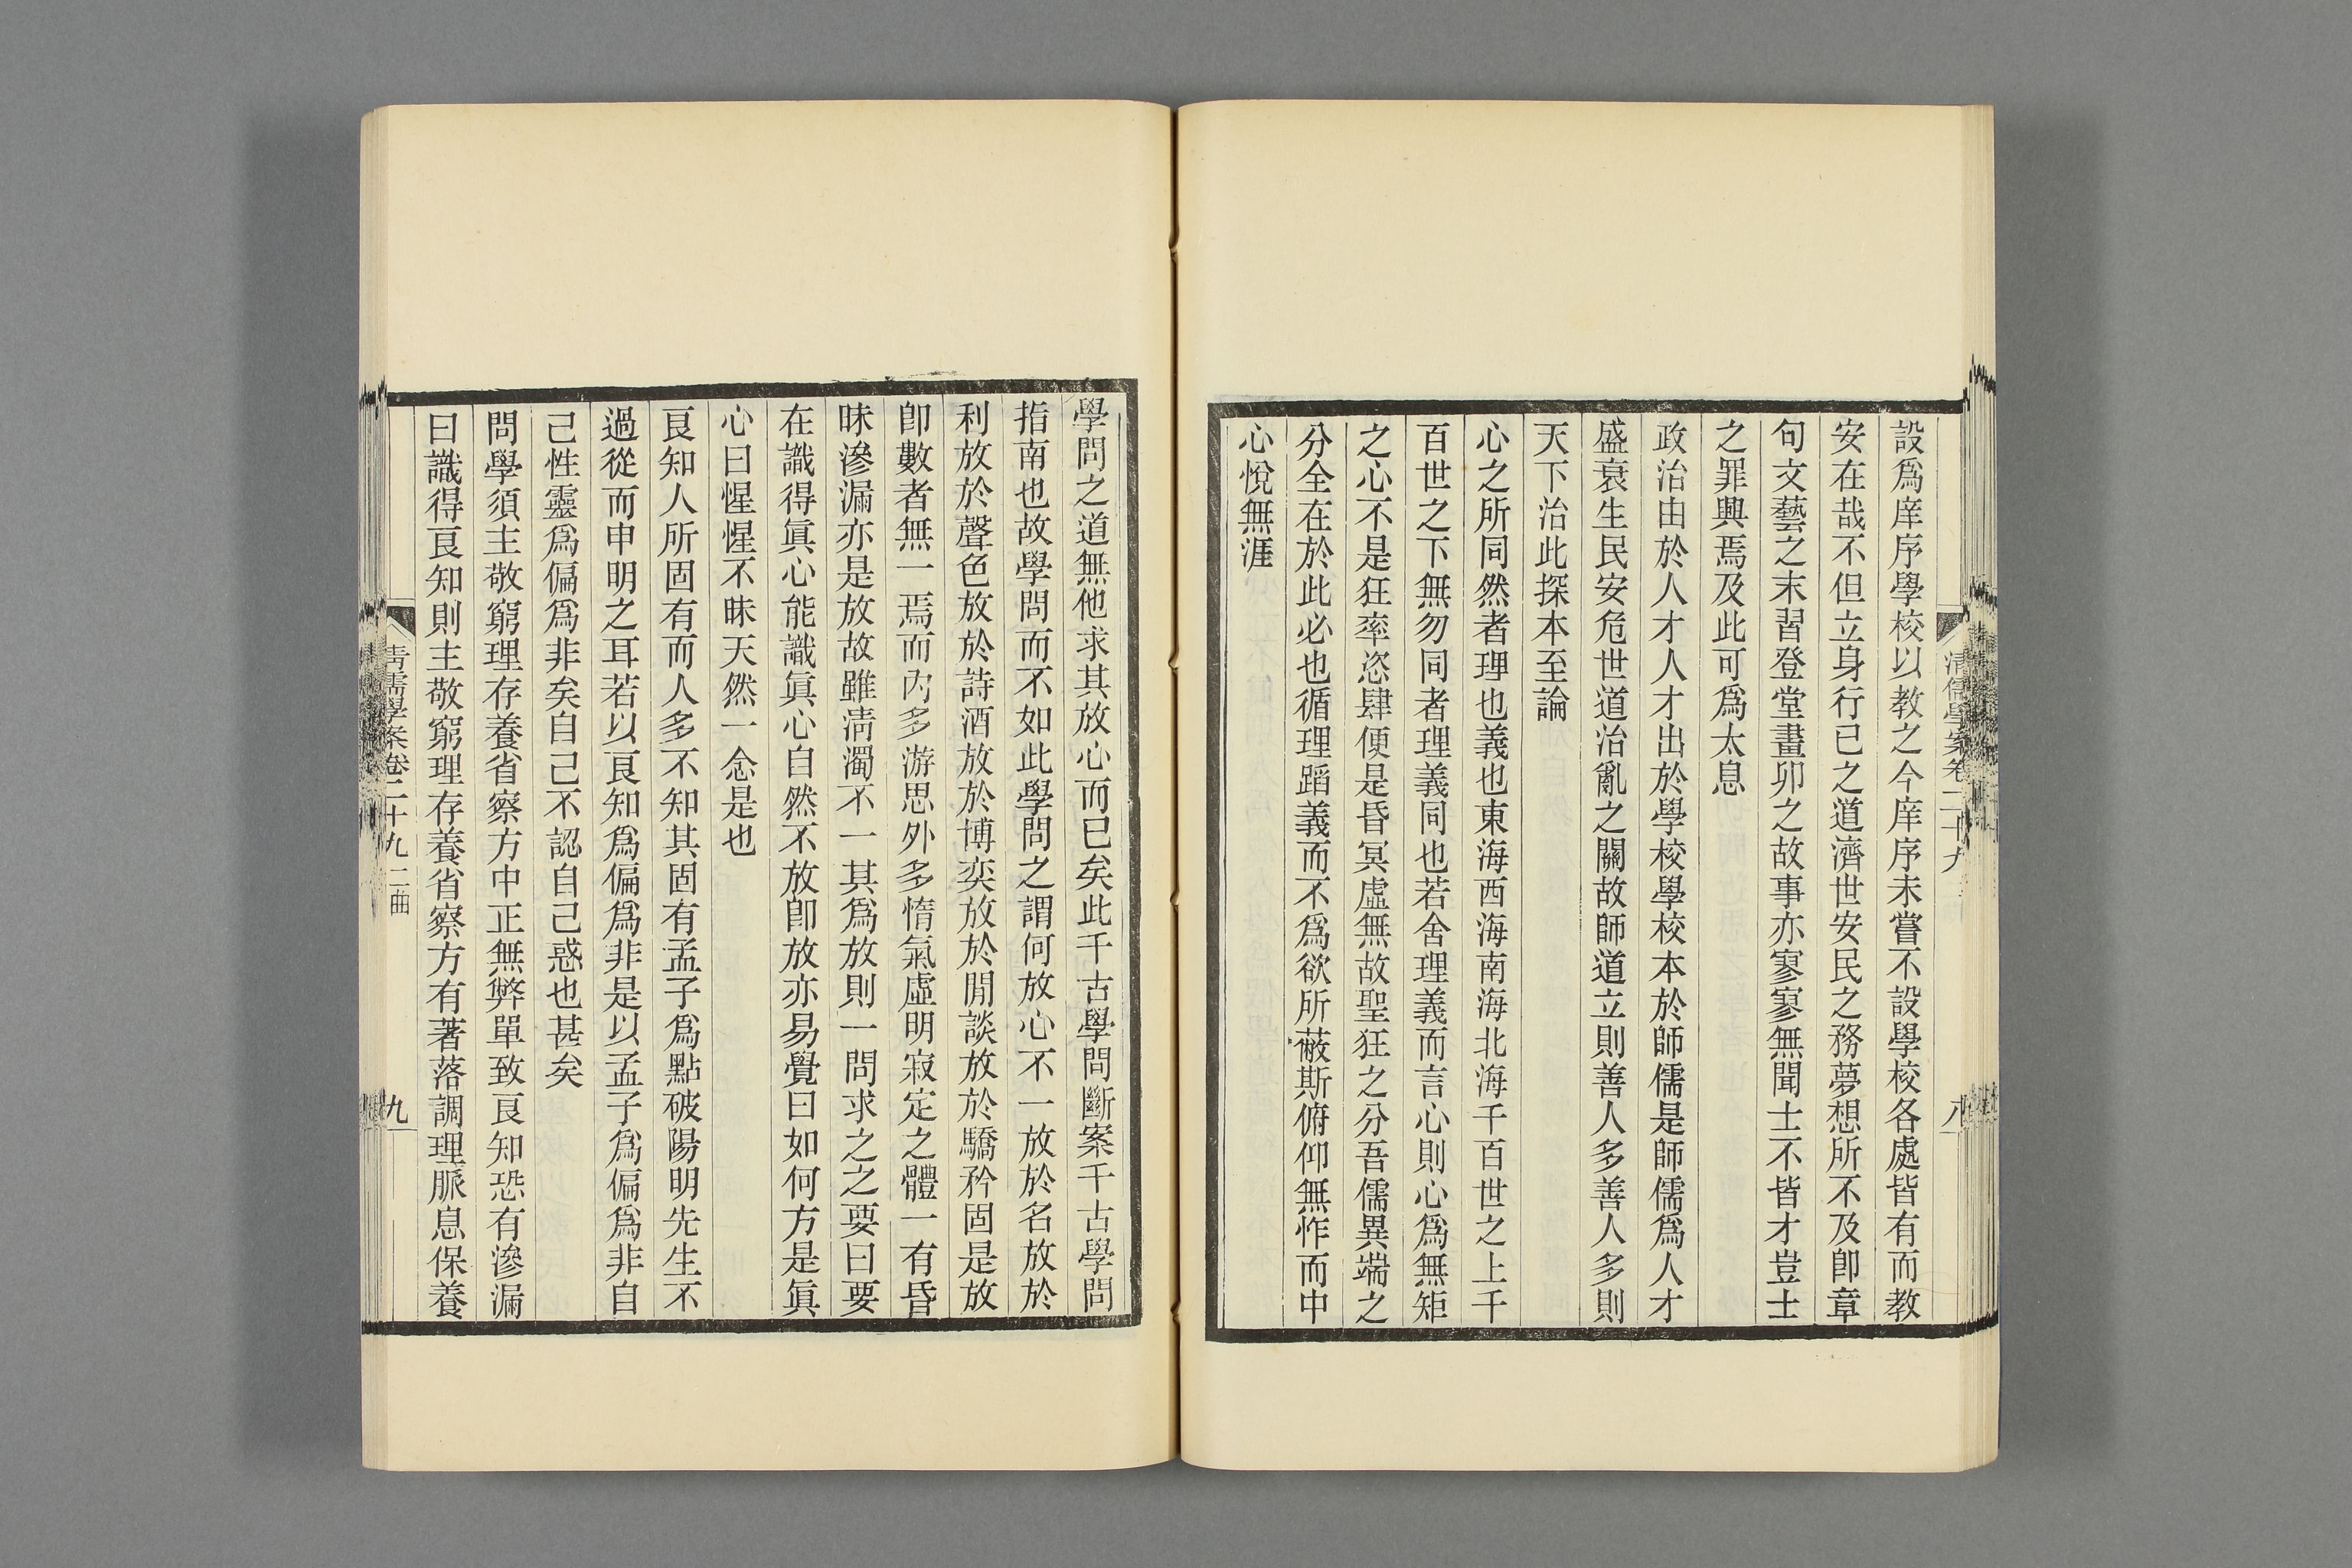 清儒學案卷二十九
八
設爲庠序學校以教之今庠序未嘗不設學校各處皆有而教
安在哉不但立身行己之道濟世安民之務夢想所不及卽章
句文藝之末習登堂畫卯之故事亦寥寥無聞士不皆才豈士
之罪興焉及此可爲太息
政治由於人才人才出於學校學校本於師儒是師儒爲人才
盛衰生民安危世道治亂之關故師道立則善人多善人多則
天下治此探本至論
心之所同然者理也義也東海西海南海北海千百世之上千
百世之下無勿同者理義同也若舍理義而言心則心爲無矩
之心不是狂率恣肆便是昏冥虛無故聖狂之分吾儒異端之
分全在於此必也循理蹈義而不爲欲所蔽斯俯仰無怍而中
心悅無涯
學問之道無他求其放心而已矣此千古學問斷案千古學問
指南也故學問而不如此學問之謂何放心不一放於名放於
利放於聲色放於詩酒放於博奕放於閒談放於驕矜固是放
卽數者無一焉而內多游思外多惰氣虛明寂定之體一有昏
昧滲漏亦是放故雖淸濁不一其爲放則一問求之之要曰要
在識得眞心能識眞心自然不放卽放亦易覺曰如何方是眞
心曰惺惺不昧天然一念是也
良知人所固有而人多不知其固有孟子爲點破陽明先生不
過從而申明之耳若以良知爲偏爲非是以孟子爲偏爲非自
己性靈爲偏爲非矣自己不認自己惑也甚矣
問學須主敬窮理存養省察方中正無弊單致良知恐有滲漏
曰識得良知則主敬窮理存養省察方有著落調理脈息保養
清儒學案卷二十九 二曲
九